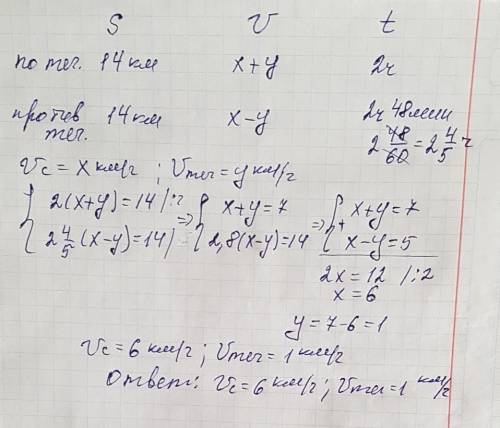 S V t
по теч. 14 км x+y 2ч
против 14 км x-y 2ч 48мин
теч. 2 48/60 = 2 4/5 ч
Vc = x км/ч ; Vтеч = y км/ч
{ 2(x+y)=14 |:2 => { x+y=7 => { x+y=7
{ 2 4/5 (x-y)=14 | { 2,8(x-y)=14 { + x-y=5
2x = 12 /:2
x = 6
y = 7-6 = 1
Vc = 6 км/ч ; Vтеч = 1 км/ч
Ответ: Vc = 6 км/ч ; Vтеч = 1 км/ч